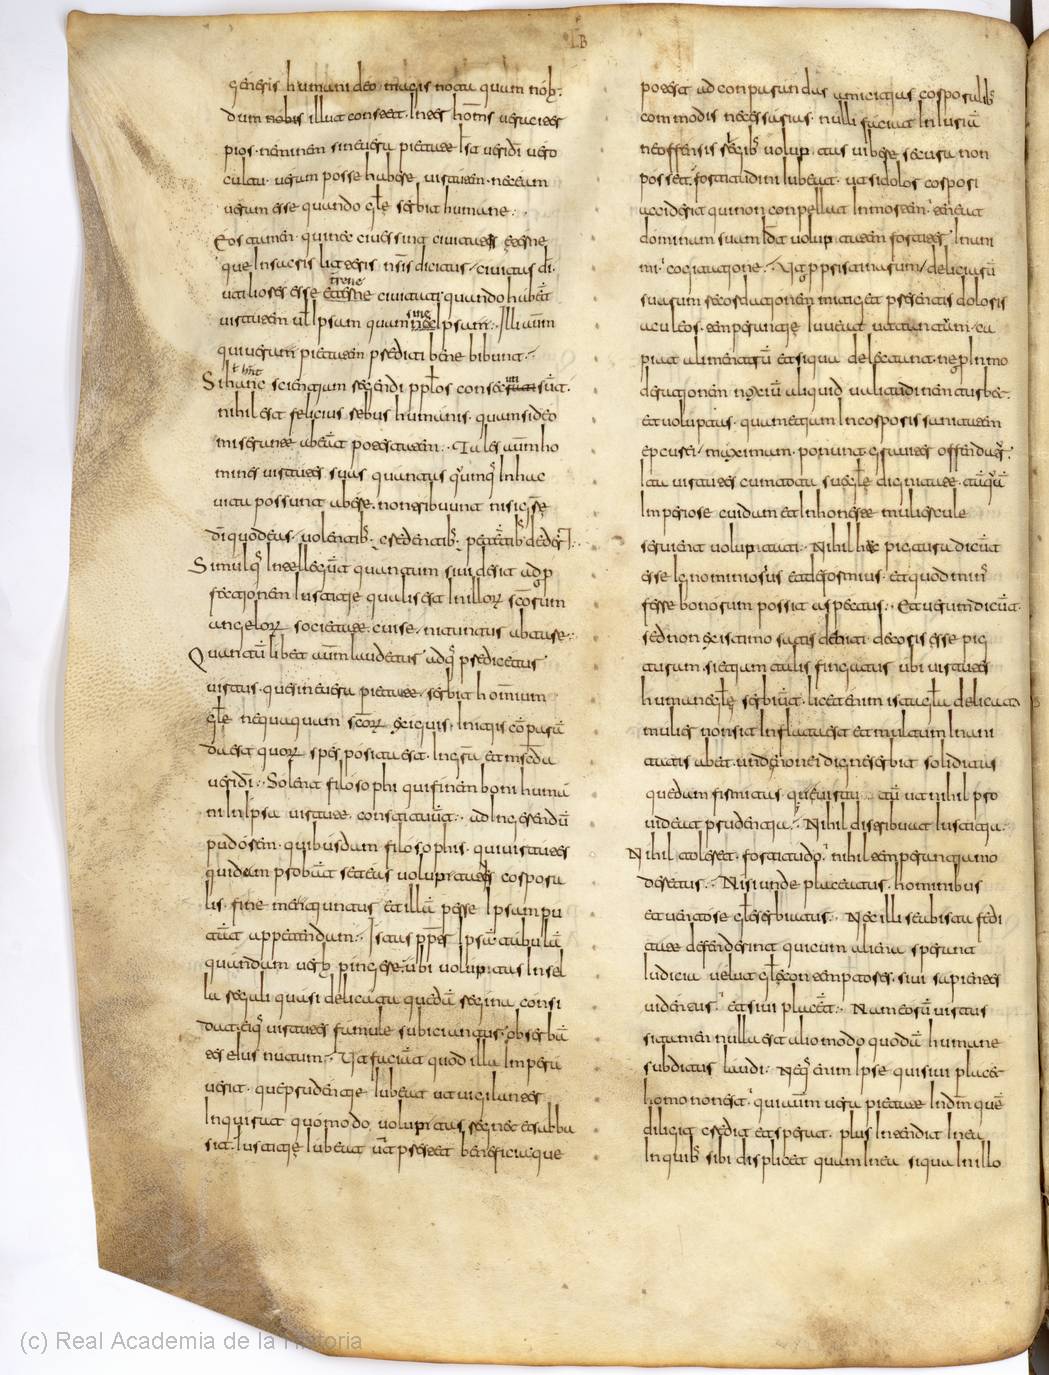 LB
generis humani deo magis nota quam nob:
dum nobis illut constet. Inter hom̄s ueraciter
pios. neminem sine uera pietate. Id est ueri dī uero
cultu. ueram posse habere uirtutem. nec eam
ueram esse quando glē serbit humane:.
Eos tamen qui nec ciues sint ciuitatis eterne
que In sacris litteris nsīs dicitur ciuitas dī.
utiliores esse terrene ciuitati quando habent
uirtutem ul Ipsam quam sine Ipsam:. Illi autm
qui uera pietate prediti bene bibunt:.
Si hanc scientiam regendi pplos consecuti sūt.
nihil est felicius rebus humanis. quam si deo
miserante abeāt potestatem:. Tales autm ho
mines uirtutes suas quantas q̄mq̄ In hac
uita possunt abere. non tribuunt nisi grē
dī quod eas uolentib. credentib. petētib dederI:.
Simulq̄ Intellegūt quantum siui desit ad p
fectionem Iustitie qualis est In illor̄ scōrum
angelor̄ societate. cui se nituntur abtare:.
Quantūlibet autm laudetur adq̄ predicetur
uirtus. que sine uera pietate. serbit hominum
glē nequaquam scōr̄ exiguis Initiis cōparā
da est quor̄ spes posita est. In grā et mscda
ueri dī:. Solent filosophi qui finem boni humā
ni In Ipsa uirtute. constituūt:. ad Ingerendū
pudorem. quibusdam filosophis. qui uirtutes
quidem probāt set eas uoluptatis corpora
lis. fine metiuntur et illā per se Ipsam pu
tāt appetendam:. Istas pp̄ter Ipsā tabulā
quandam uerb pingere. ubi uoluptas In sel
la regali quasi delicata quedā regina consi
dat. eiq̄ uirtutes famule subiciantur. obserbā
tes eIus nutum:. Ut faciāt quod illa Imperā
uerit. que prudentie Iubeat ut uigilanter
Inquirat quomodo uoluptas regnet et salba
sit. Iustitie Iubeat ut prestet beneficia que
potest ad conparandas amicitias corporalib
commodis necessarias. nulli faciat Iniuriā
ne offensis legib uoluptas uibere secura non
possit. fortitudini Iubeat. ut si dolor corpori
acciderit qui non conpellat In mortem. teneat
dominam suam Id est uoluptatem fortiter In ani
mi cogitatione:. Ut p pristinarum deliciarū
suarum recordationem mitiget presentis doloris
aculeos. temperantie Iuueat ut tantum ca
piat alimentorū et siqua delectant. ne p Inmo
derationem noxiū aliquid ualitudinem turbet.
et uoluptas. quam etiam In corporis sanitatem
epicuri maximam ponunt. grauiter offendat.
Ita uirtutes cum tota sue glē dignitate. tāq̄
Imperiose cuidam et Inhoneste muliercule
seruient uoluptati:. Nihil hac pictura dicūt
esse Ignominiosius et deformius. et quod min
ferre bonorum possit aspectus:. Et uerum dicūt.
sed non existimo satis debiti decoris esse pic
turam. si etiam talis fingatur ubi uirtutes
humane glē serbiūt. licet enim ista gla delicata
mulier non sit Inflata est et multum Inani
tatis abet. unde non ei digne serbit soliditas
quedam firmitas. ut nihil pro
uideat prudentia:. Nihil distribuat Iustitia:.
Nihil toleret. fortitudo. nihil temperantia mo
deretur:. Nisi unde placeatur. hominibus
et uentose gle serbiatur:. Nec illi se ab ista fedi
tate defenderint qui cum aliena spernant
Iudicia uelut glē contemptores. siui sapientes
uidentur. et siui placēt:. Nam eorū uirtus
si tamen nulla est alio modo quodā humane
subditur laudi:. Neq̄ enim Ipse qui siui placet
homo non est. qui autm uera pietate In dm̄ quē
diligit credit et sperat. plus Intendit In ea
In quib sibi displicet quam In ea si qua In illo
(c) Real Academia de la Historia